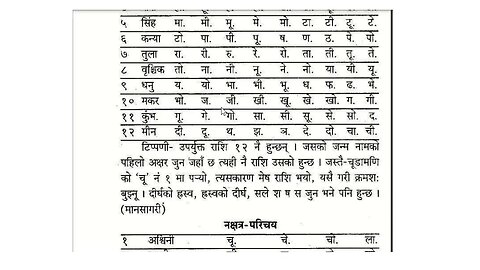 ५ सिंह मा. मी. मू. मे. मो. टा. टी. टू. टे.
६ कन्या टो. पा. पी. पू. ष. ण. ठ. पे. पो.
७ तुला रा. री. रु. रे. रो. ता. ती. तू. ते.
८ वृश्चिक तो. ना. नी. नू. ने. नो. या. यी. यू.
९ धनु य. यो. भा. भी. भू. ध. फ. ढ. भे.
१० मकर भो. ज. जी. खी. खू. खे. खो. ग. गी.
११ कुंभ. गू. गे. गो. सा. सी. सू. से. सो. द.
१२ मीन दी. दू. थ. झ. ञ. दे. दो. चा. ची.
टिप्पणी- उपर्युक्त राशि १२ नै हुन्छन् । जसको जन्म नामको
पहिलो अक्षर जुन जहाँ छ त्यही नै राशि उसको हुन्छ । जस्तै-चूडामणि
को 'चू' नं १ मा पर्‍यो, त्यसकारण मेष राशि भयो, यसै गरी क्रमशः
बुझ्नू । दीर्घको ह्रस्व, ह्रस्वको दीर्घ, सले श ष स जुन भने पनि हुन्छ ।
(मानसागरी)
नक्षत्र-परिचय
१ अश्विनी चू. चे. चो. ला.